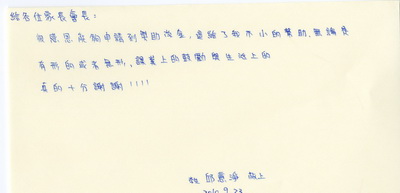 給各位家長會長：
很感恩能夠申請到獎助學金，這給了我不小的幫助，無論是
有形的或者無形，課業上的鼓勵與生活上的
真的十分謝謝！！！！
邱 敬上
2010.9.23